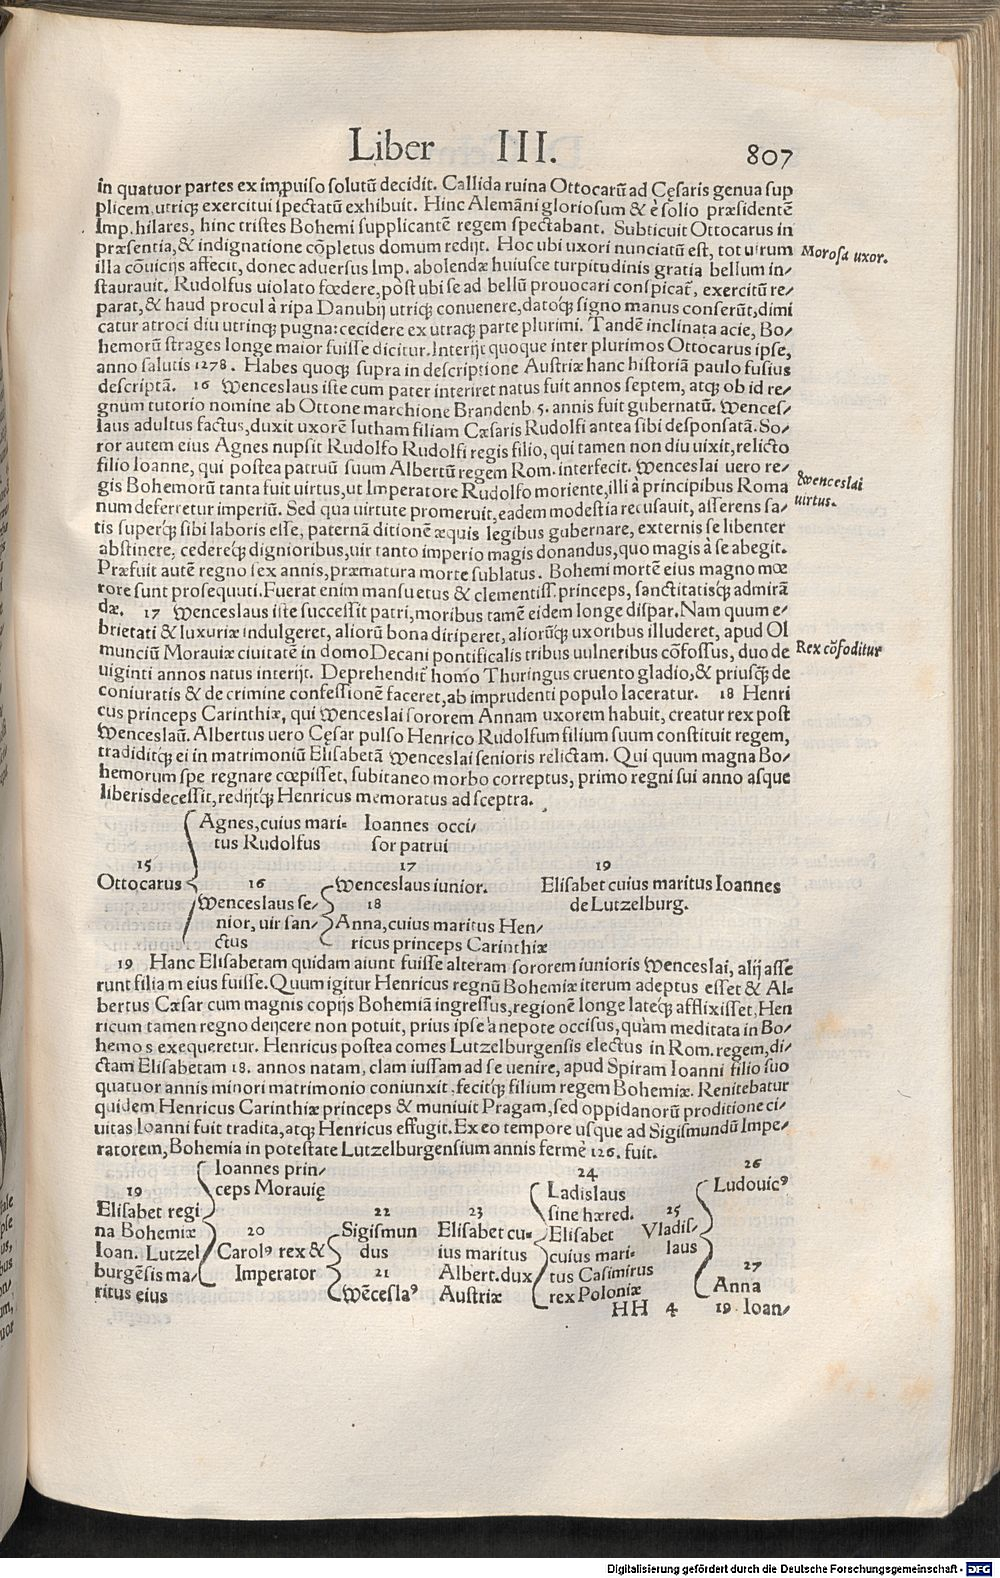 Liber III. 807
in quatuor partes ex impulso solutũ decidit. Callida ruina Ottocarũ ad Cęsaris genua sup
plicem, utriqꝫ exercitui spectatũ exhibuit. Hinc Alemãni gloriosum & è solio præsidentẽ
Imp. hilares, hinc tristes Bohemi supplicantẽ regem spectabant. Subticuit Ottocarus in
præsentia, & indignatione cõpletus domum redijt. Hoc ubi uxori nunciatũ est, tot uirum
Morosa uxor.
illa cõuicijs affecit, donec aduersus Imp. abolendæ huiusce turpitudinis gratia bellum in⸗
staurauit. Rudolfus uiolato fœdere, post ubi se ad bellũ prouocari conspicat̃, exercitũ re⸗
parat, & haud procul à ripa Danubij utriqꝫ conuenere, datoqꝫ signo manus conserũt, dimi
catur atroci diu utrinqꝫ pugna: cecidere ex utraqꝫ parte plurimi. Tandẽ inclinata acie, Bo⸗
hemorũ strages longe maior fuisse dicitur. Interijt quoque inter plurimos Ottocarus ipse,
anno salutis 1278. Habes quoqꝫ supra in descriptione Austriæ hanc historiã paulo fusius
descriptã. 16 Wenceslaus iste cum pater interiret natus fuit annos septem, atqꝫ ob id re⸗
gnum tutorio nomine ab Ottone marchione Brandenb. 5. annis fuit gubernatũ. Wences⸗
laus adultus factus, duxit uxorẽ Iutham filiam Cæsaris Rudolfi antea sibi desponsatã. So⸗
ror autem eius Agnes nupsit Rudolfo Rudolfi regis filio, qui tamen non diu uixit, relicto
filio Ioanne, qui postea patruũ suum Albertũ regem Rom. interfecit. Wenceslai uero re⸗
gis Bohemorũ tanta fuit uirtus, ut Imperatore Rudolfo moriente, illi à principibus Roma
Wenceslai
uirtus.
num deferretur imperiũ. Sed qua uirtute promeruit, eadem modestia recusauit, asserens sa⸗
tis superqꝫ sibi laboris esse, paternã ditionẽ æquis legibus gubernare, externis se libenter
abstinere, cedereqꝫ dignioribus, uir tanto imperio magis donandus, quo magis à se abegit.
Præfuit autẽ regno sex annis, præmatura morte sublatus. Bohemi mortẽ eius magno mœ
rore sunt prosequuti. Fuerat enim mansuetus & clementiss. princeps, sanctitatisqꝫ admirã
dæ. 17 Wenceslaus iste successit patri, moribus tamẽ eidem longe dispar. Nam quum e⸗
brietati & luxuriæ indulgeret, aliorũ bona diriperet, aliorũqꝫ uxoribus illuderet, apud Ol
munciũ Morauiæ ciuitatẽ in domo Decani pontificalis tribus uulneribus cõfossus, duo de
Rex cõfoditur
uiginti annos natus interijt. Deprehendit̃ homo Thuringus cruento gladio, & priusqꝫ de
coniuratis & de crimine confessionẽ faceret, ab imprudenti populo laceratur. 18 Henri
cus princeps Carinthiæ, qui Wenceslai sororem Annam uxorem habuit, creatur rex post
Wenceslaũ. Albertus uero Cęsar pulso Henrico Rudolfum filium suum constituit regem,
tradiditqꝫ ei in matrimoniũ Elisabetã Wenceslai senioris relictam. Qui quum magna Bo⸗
hemorum spe regnare cœpisset, subitaneo morbo correptus, primo regni sui anno absque
liberis decessit, redijtqꝫ Henricus memoratus ad sceptra.
Agnes, cuius mari⸗ Ioannes occi⸗
tus Rudolfus sor patrui
15 17 19
Ottocarus 16 Wenceslaus iunior. Elisabet cuius maritus Ioannes
Wenceslaus se⸗ 18 de Lutzelburg.
nior, uir san⸗ Anna, cuius maritus Hen⸗
ctus ricus princeps Carinthiæ
19 Hanc Elisabetam quidam aiunt fuisse alteram sororem iunioris Wenceslai, alij asse
runt filiam eius fuisse. Quum igitur Henricus regnũ Bohemiæ iterum adeptus esset & Al⸗
bertus Cæsar cum magnis copijs Bohemiã ingressus, regionẽ longe lateqꝫ afflixisset, Hen
ricum tamen regno deijcere non potuit, prius ipse à nepote occisus, quàm meditata in Bo⸗
hemos exequeretur. Henricus postea comes Lutzelburgensis electus in Rom. regem, di⸗
ctam Elisabetam 18. annos natam, clam iussam ad se uenire, apud Spiram Ioanni filio suo
quatuor annis minori matrimonio coniunxit, fecitqꝫ filium regem Bohemiæ. Renitebatur
quidem Henricus Carinthiæ princeps & muniuit Pragam, sed oppidanorũ proditione ci⸗
uitas Ioanni fuit tradita, atqꝫ Henricus effugit. Ex eo tempore usque ad Sigismundũ Impe⸗
ratorem, Bohemia in potestate Lutzelburgensium annis fermè 126. fuit.
Ioannes prin⸗ 24 26
19 ceps Morauię Ladislaus Ludouicꝰ
Elisabet regi 22 23 sine hæred. 25
na Bohemiæ 20 Sigismun Elisabet cu⸗ Elisabet Vladis⸗
Ioan. Lutzel Carolꝰ rex & dus ius maritus cuius mari⸗ laus
burgẽsis ma⸗ Imperator 21 Albert. dux tus Casimirus 27
ritus eius Wẽceslaꝰ Austriæ rex Poloniæ Anna
HH 4 19 Ioan⸗
Digitalisierung gefördert durch die Deutsche Forschungsgemeinschaft - DFG